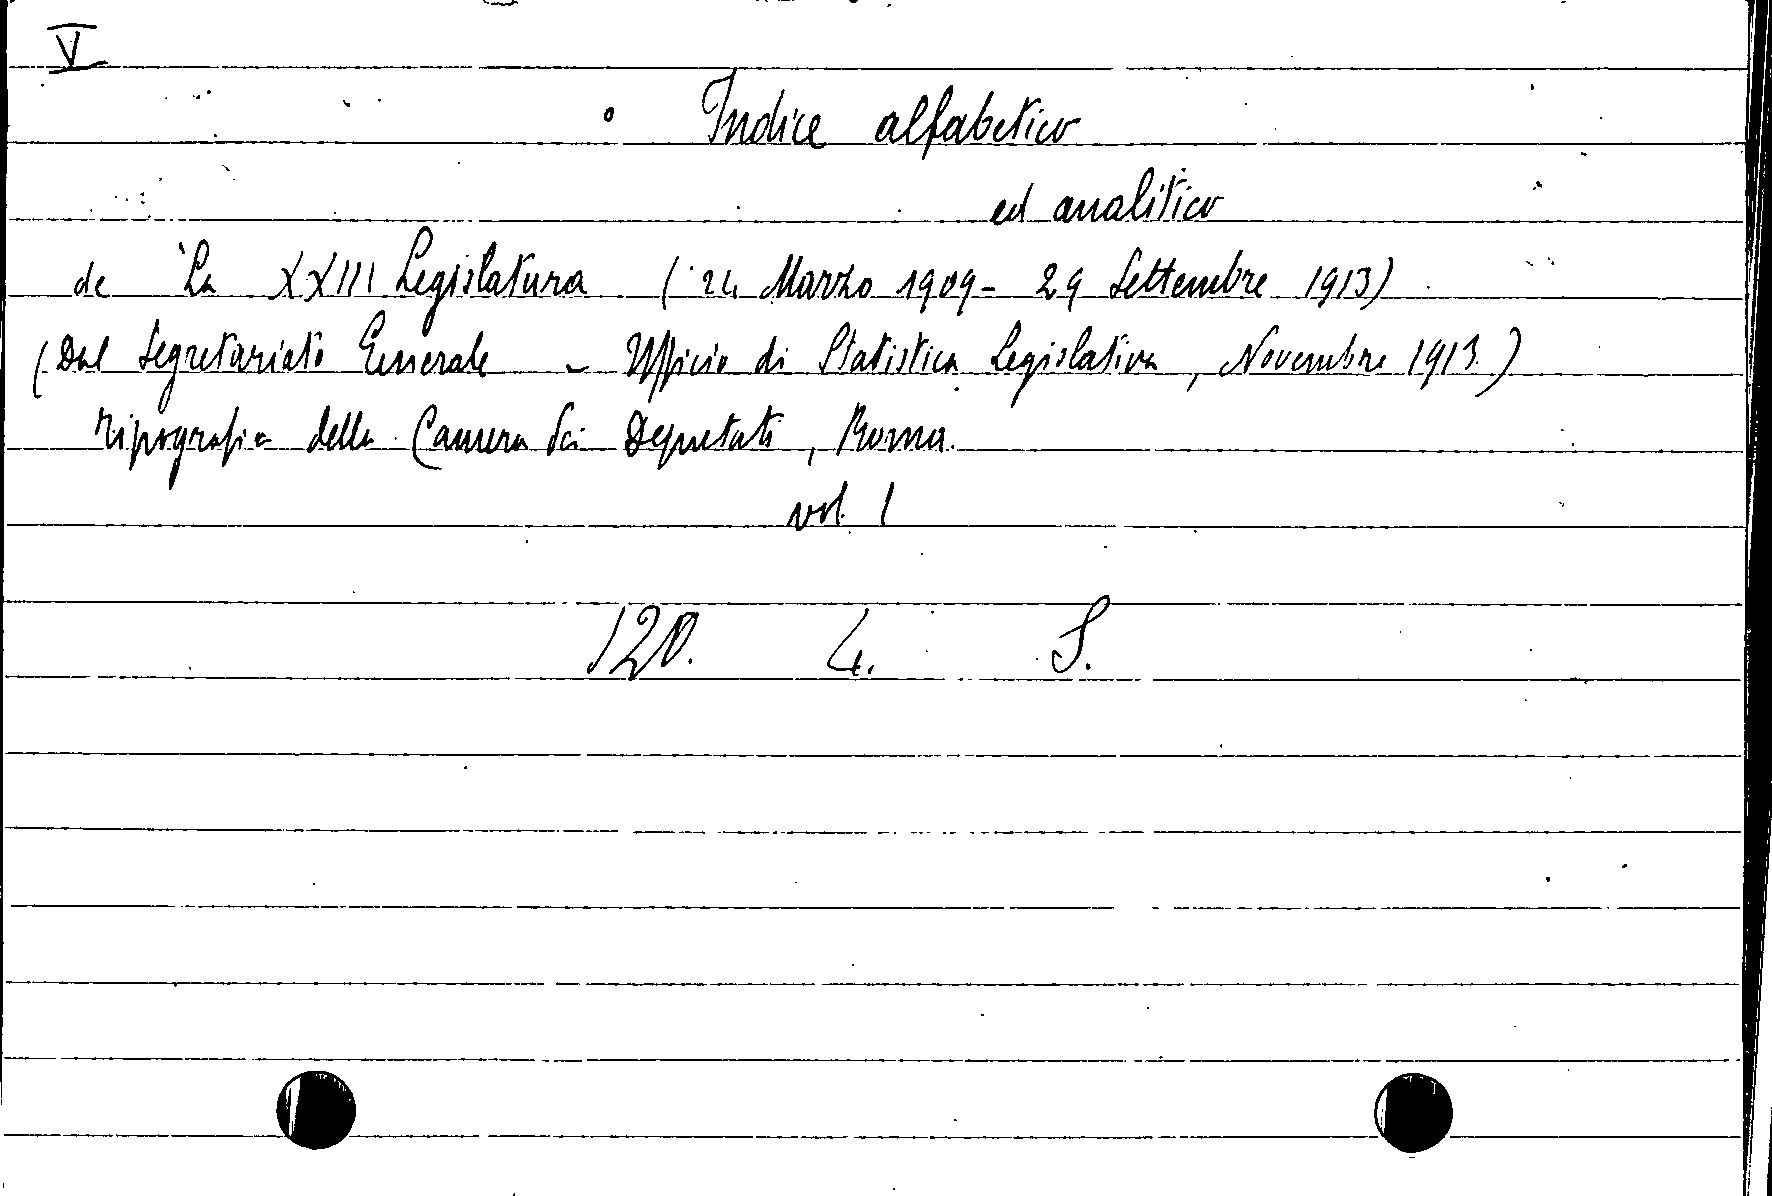 V
Indice alfabetico
ed analitico
de "La XXIII Legislatura (24 Marzo 1909 - 29 Settembre 1913)
(Dal Segretariato Generale - Ufficio di Statistica Legislativa, Novembre 1913.)
Tipografia della Camera dei Deputati, Roma.
vol. I
120. 4. S.